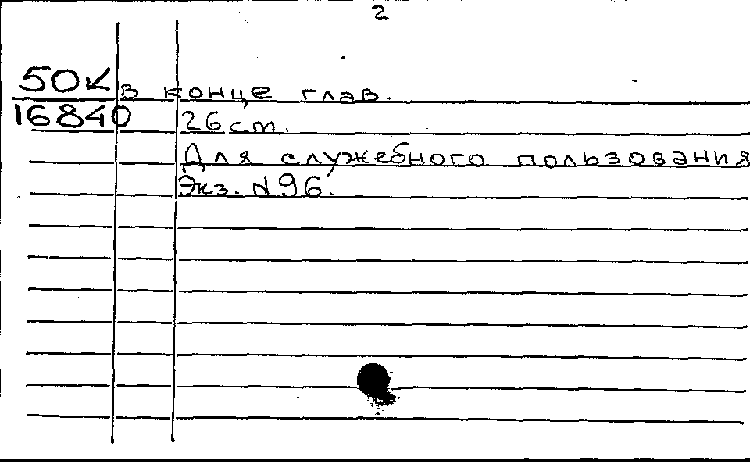 2
50К в конце глав.
16840 26 cm.
Для служебного пользования
Экз. N 96.